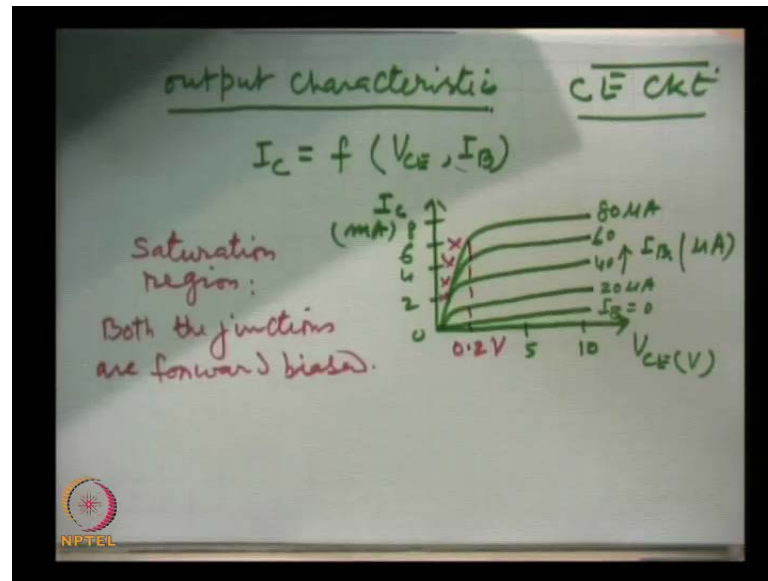 output characteristic CE ckt
I_C = f (V_CE, I_B)
Saturation
region:
Both the junctions
are forward biased.
I_C
(mA)
8
6
4
2
0
x
x
x
80 μA
60
40 ↑ I_B (μA)
20 μA
I_B = 0
0.2 V 5 10 V_CE (V)
NPTEL